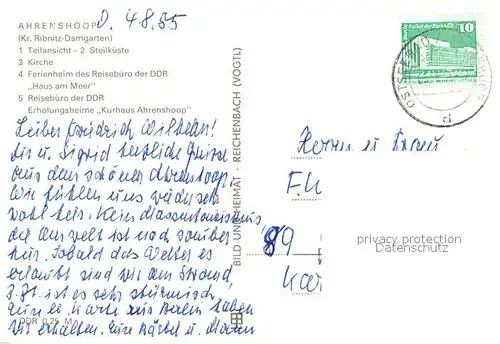 AHRENSHOOP
D. 4.8.85
(Kr. Ribnitz-Damgarten)
1 Teilansicht – 2 Steilküste
3 Kirche
4 Ferienheim des Reisebüro der DDR
„Haus am Meer"
5 Reisebüro der DDR
Erholungsheime „Kurhaus Ahrenshoop"
Lieber Friedrich Wilhelm!
Dir u. Sigrid herzliche Grüße
aus dem schönen Ahrenshoop.
Wir fühlen uns
wohl hier. Kein Massentourismus,
die Umwelt ist noch sauber
hier. Sobald das Wetter es
erlaubt sind wir am Strand,
z. Zt. ist es sehr stürmisch,
Eure Karte aus Berlin haben
wir erhalten. Eure Bärbel u.
DDR 0,25 M
BILD UND HEIMAT · REICHENBACH (VOGTL)
10
OSTSEEBAD
d
Herrn u Frau
F.
89
Kar
privacy protection
Datenschutz